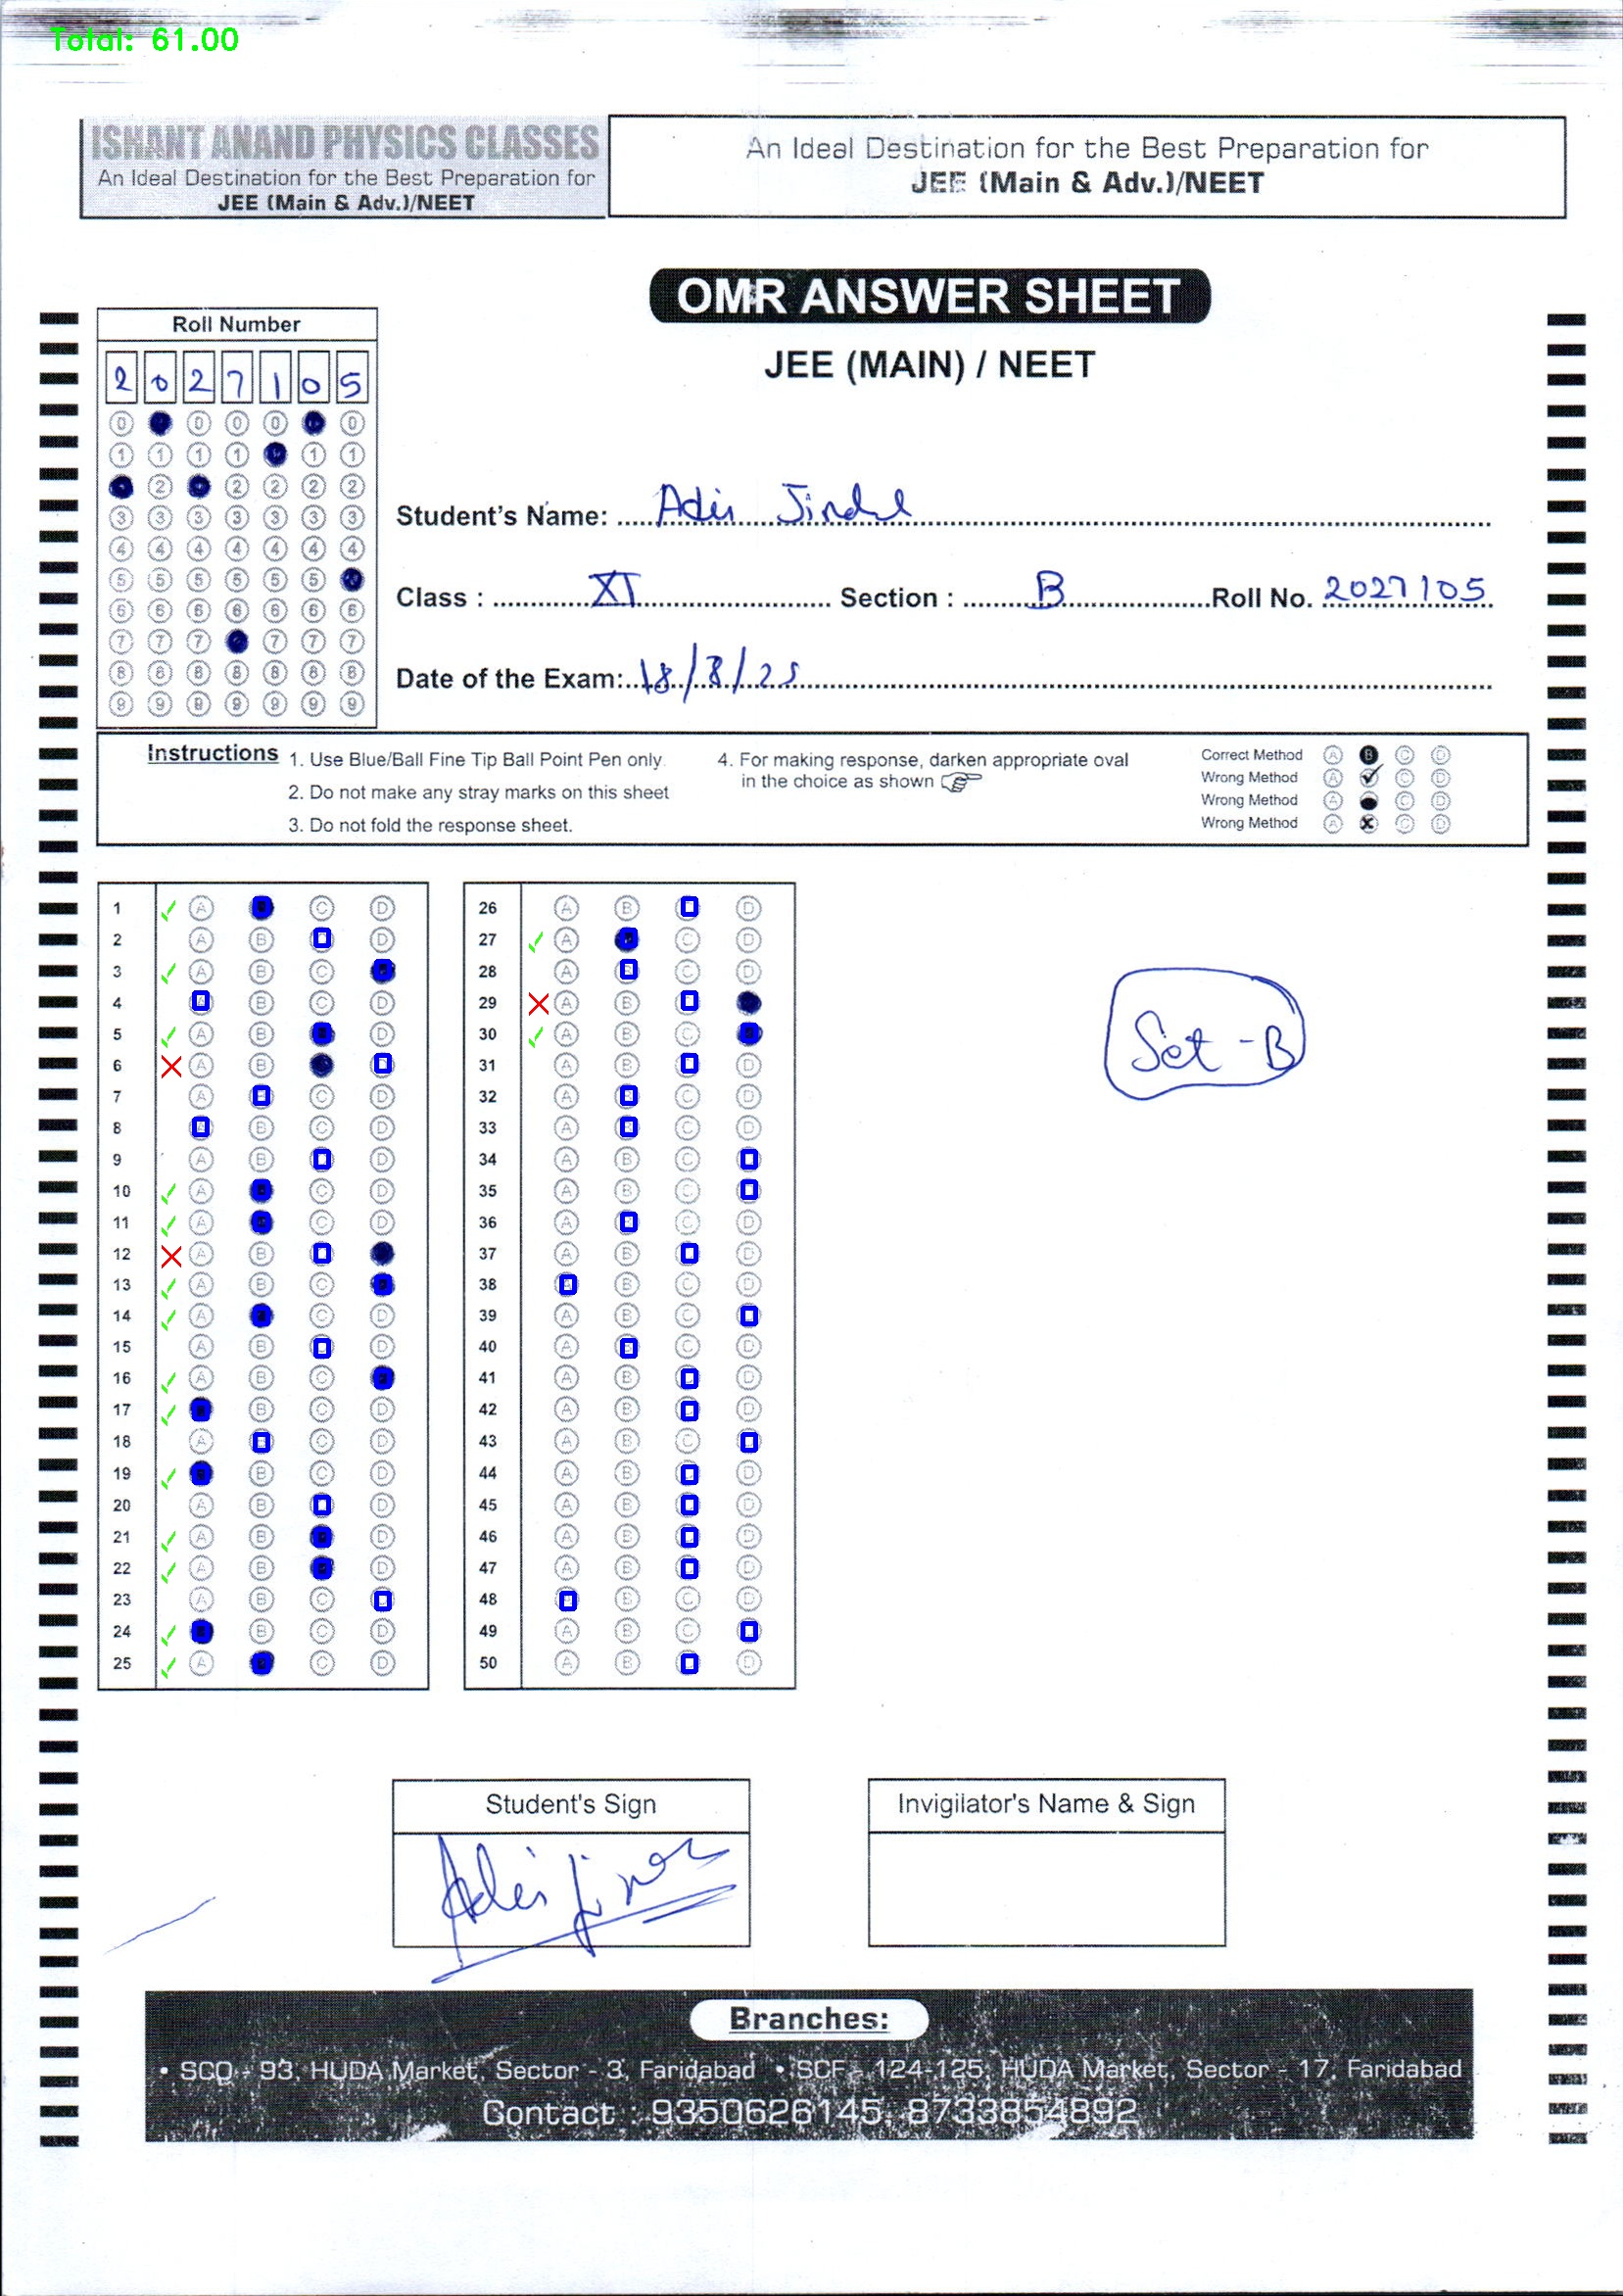 Total: 61.00
ISHANT ANAND PHYSICS CLASSES
An Ideal Destination for the Best Preparation for
JEE (Main & Adv.)/NEET
An Ideal Destination for the Best Preparation for
JEE (Main & Adv.)/NEET
OMR ANSWER SHEET
JEE (MAIN) / NEET
Roll Number
2 0 2 7 1 0 5
0 0 0 0 0
1 1 1 1 1 1
2 2 2 2 2
3 3 3 3 3 3 3
4 4 4 4 4 4 4
5 5 5 5 5 5
6 6 6 6 6 6 6
7 7 7 7 7 7
8 8 8 8 8 8 8
9 9 9 9 9 9 9
Student's Name: Jindal
Class : XI Section : B Roll No. 2027105
Date of the Exam: 18/8/25
Instructions
1. Use Blue/Ball Fine Tip Ball Point Pen only.
2. Do not make any stray marks on this sheet
3. Do not fold the response sheet.
4. For making response, darken appropriate oval
in the choice as shown
Correct Method A B C D
Wrong Method A C D
Wrong Method A C D
Wrong Method A C D
1 A C D
2 A B D
3 A B C
4 A B C D
5 A B D
6 A B D
7 A B C D
8 A B C D
9 A B D
10 A C D
11 A C D
12 A B
13 A B C
14 A C D
15 A B D
16 A B C
17 B C D
18 A B C D
19 B C D
20 A B D
21 A B D
22 A B D
23 A B C
24 B C D
25 A C D
26 A B D
27 A C D
28 A B C D
29 A B
30 A B C
31 A B D
32 A B C D
33 A B C D
34 A B C D
35 A B C D
36 A B C D
37 A B D
38 A B C D
39 A B C D
40 A B C D
41 A B D
42 A B D
43 A B C D
44 A B D
45 A B D
46 A B D
47 A B D
48 A B C D
49 A B C D
50 A B D
Set - B
Student's Sign
Invigilator's Name & Sign
Branches:
• SCO - 93, HUDA Market, Sector - 3, Faridabad • SCF - 124-125, HUDA Market, Sector - 17, Faridabad
Contact : 9350626145, 8733854892